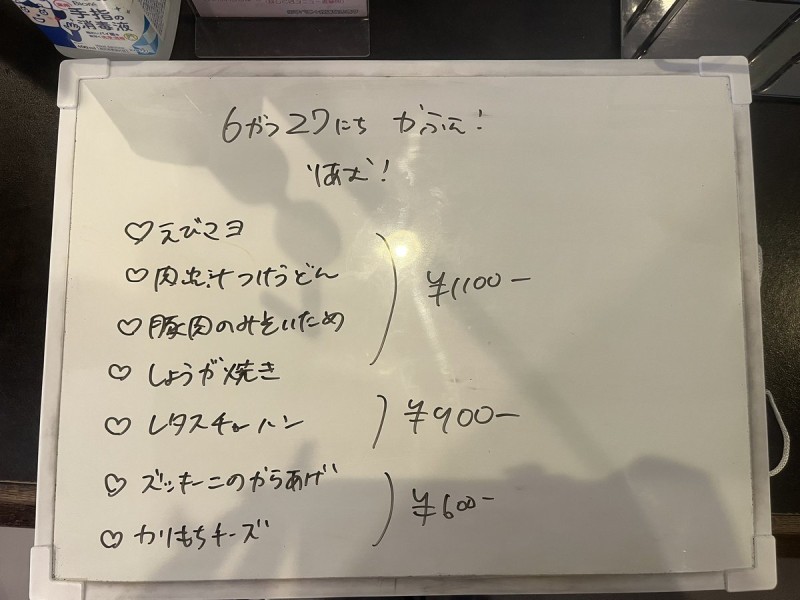 手指の
消毒液
6がつ27にち かふぇ!
りあむ!
♡えびマヨ
♡肉出汁つけうどん
♡豚肉のみそいため
♡しょうが焼き
¥1100-
♡レタスチャーハン
¥900-
♡ズッキーニのからあげ
♡かりもちチーズ
¥600-